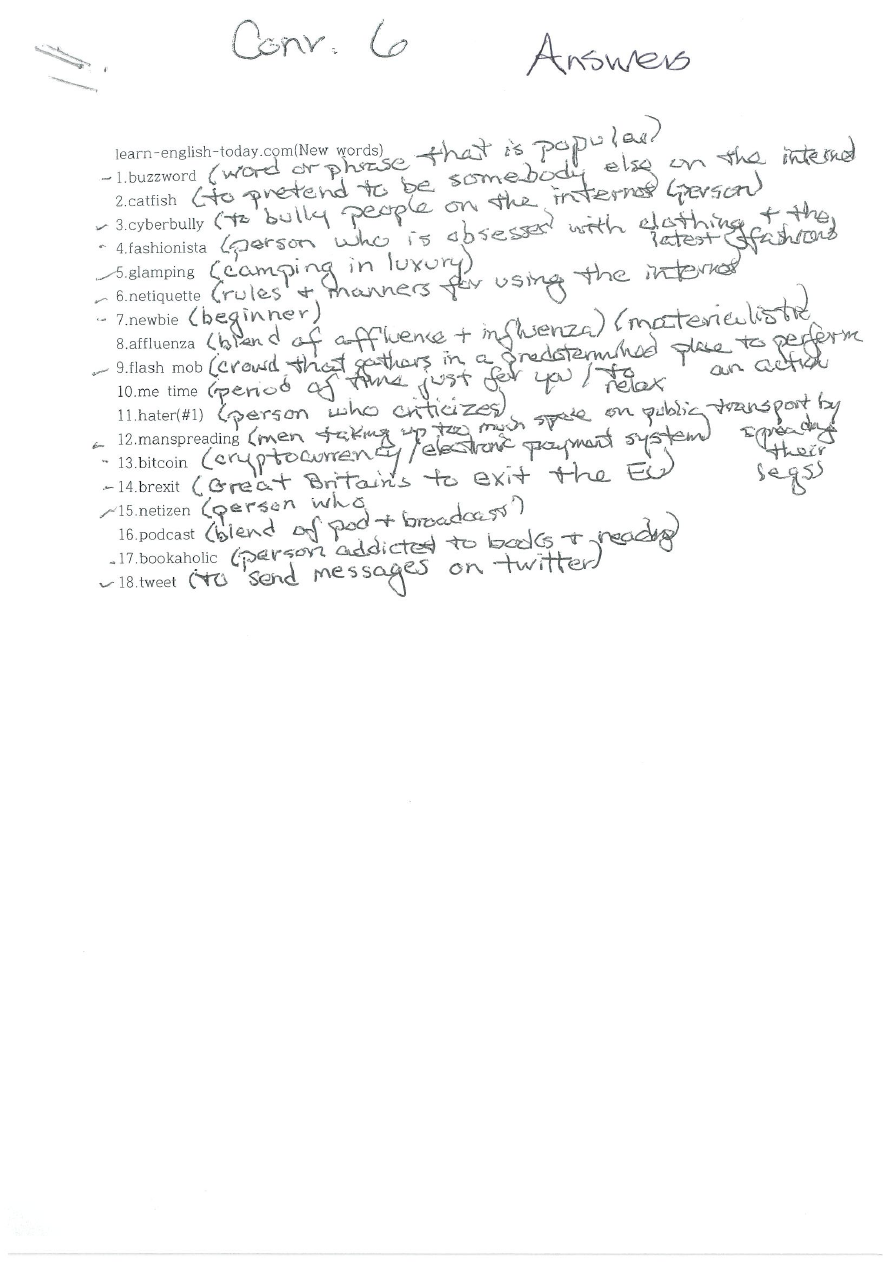 Conv. 6 Answers
learn-english-today.com(New words)
1.buzzword (word or phrase that is popular)
2.catfish (to pretend to be somebody else on the internet (person)
3.cyberbully (to bully people on the internet
4.fashionista (person who is obsessed with clothing + the latest fashions
5.glamping (camping in luxury)
6.netiquette (rules + manners for using the internet
7.newbie (beginner)
8.affluenza (blend of affluence + influenza) (materialistic
9.flash mob (crowd that gathers in a predetermined place to perform an action
10.me time (period of time just for you / to relax
11.hater(#1) (person who criticizes)
12.manspreading (men taking up too much space on public transport by spreading their legs)
13.bitcoin (cryptocurrency / electronic payment system)
14.brexit (Great Britain's to exit the EU)
15.netizen (person who
16.podcast (blend of pod + broadcast)
17.bookaholic (person addicted to books + reading)
18.tweet (to send messages on twitter)